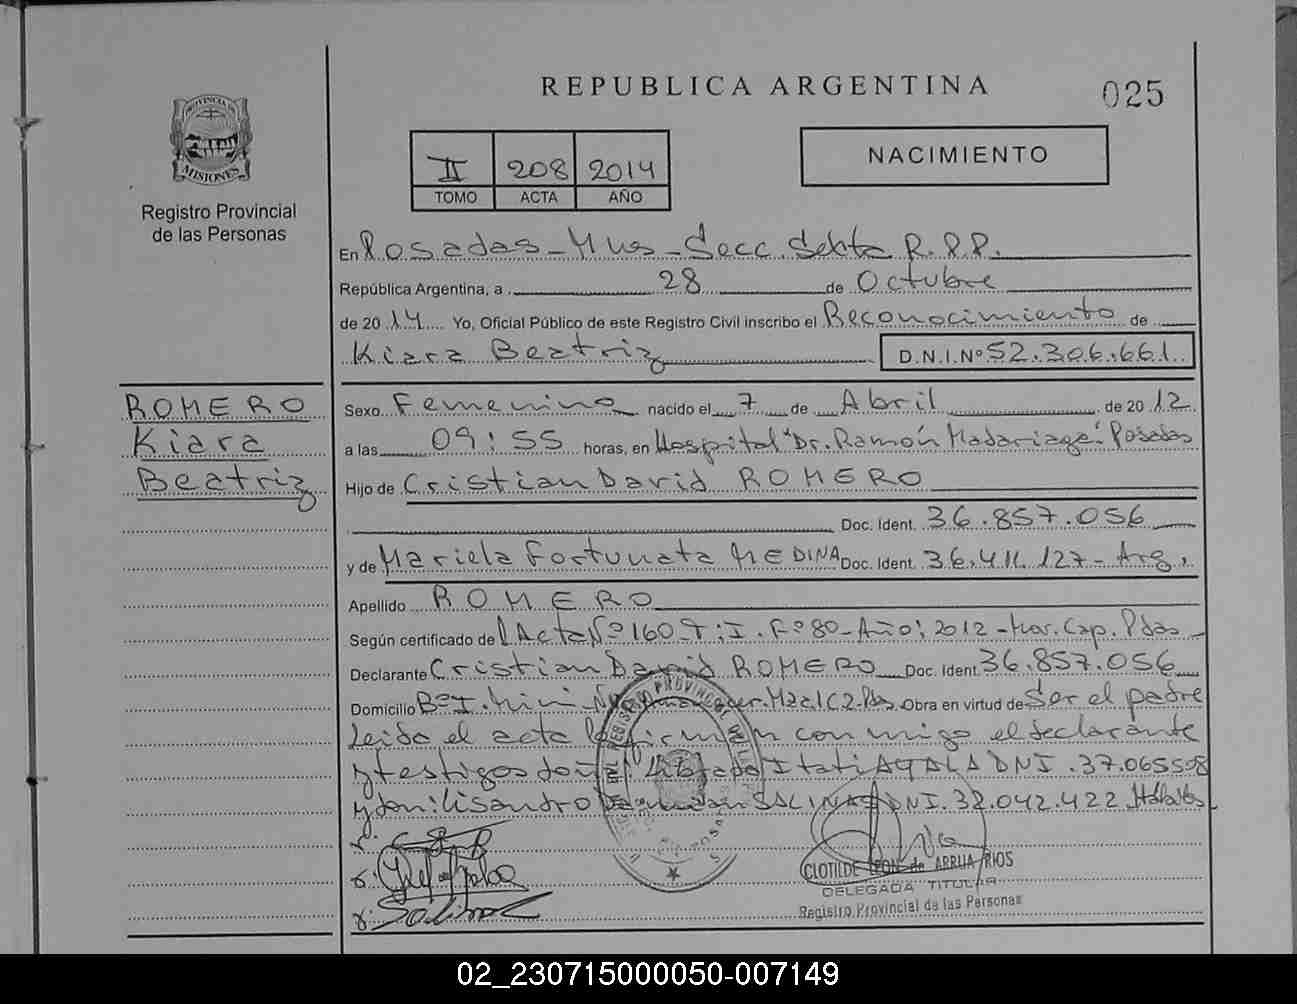 REPUBLICA ARGENTINA
025
PROVINCIA DE
MISIONES
Registro Provincial
de las Personas
II 208 2014
TOMO ACTA AÑO
NACIMIENTO
En Posadas - Mnes - Secc. Sexta R.P.P.
República Argentina, a 28 de Octubre
de 2014 Yo, Oficial Público de este Registro Civil inscribo el Reconocimiento de
Kiara Beatriz D.N.I.Nº 52.306.661
ROMERO
Kiara
Beatriz
Sexo Femenino nacido el 7 de Abril de 2012
a las 09:55 horas, en Hospital "Dr. Ramón Madariaga". Posadas
Hijo de Cristian David ROMERO
Doc. Ident. 36.857.056
y de Mariela Fortunata MEDINA Doc. Ident. 36.411.127 - Arg.
Apellido ROMERO
Según certificado de Acta Nº 160 - T: I. Fº 80 - Año: 2012 - Mar. Cap. Pdas
Declarante Cristian David ROMERO Doc. Ident. 36.857.056
Domicilio Bº I. Miní - Mz C2 - Pdas. Obra en virtud de Ser el padre
Leido el acta la firman conmigo el declarante
y testigos doña: Itati AYALA DNI. 37.065.508
y don Lisandro SALINAS DNI. 32.042.422 Hábiles
CLOTILDE LEON de ARRUA RIOS
DELEGADA TITULAR
Registro Provincial de las Personas
02_230715000050-007149